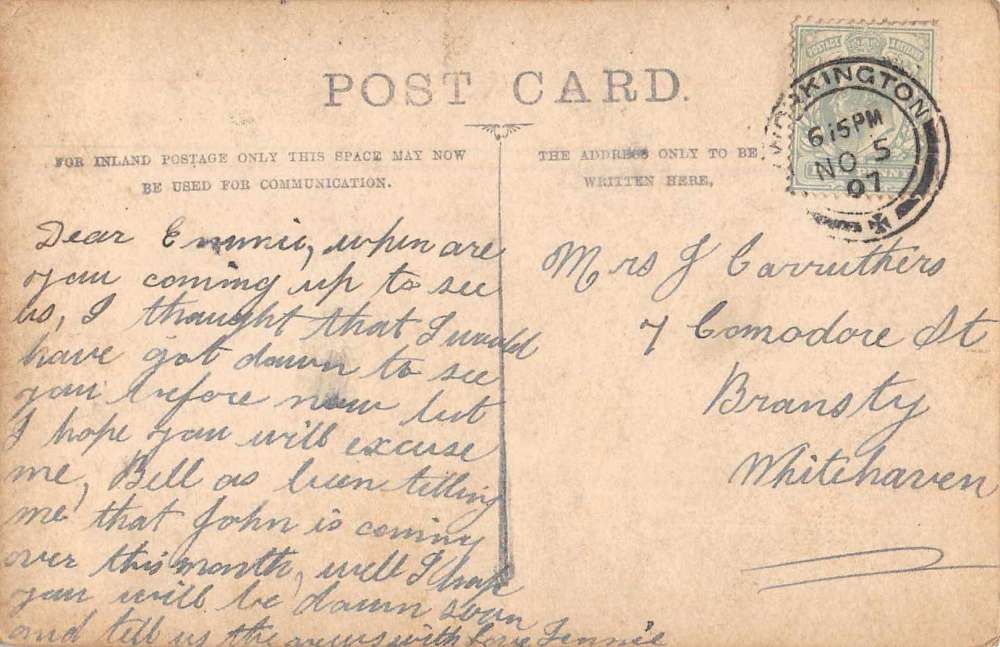 POST CARD.
FOR INLAND POSTAGE ONLY THIS SPACE MAY NOW
BE USED FOR COMMUNICATION.
THE ADDRESS ONLY TO BE
WRITTEN HERE,
POSTAGE & REVENUE
PENNY
WORKINGTON
615PM
NO 5
07
Dear Emmie, when are
you coming up to see
us, I thought that I would
have got down to see
you before now but
I hope you will excuse
me, Bell as been telling
me that John is coming
over this month, well I hope
you will be down soon
and tell us the news with love Jennie
Mrs J Carruthers
7 Comodore St
Bransty
Whitehaven